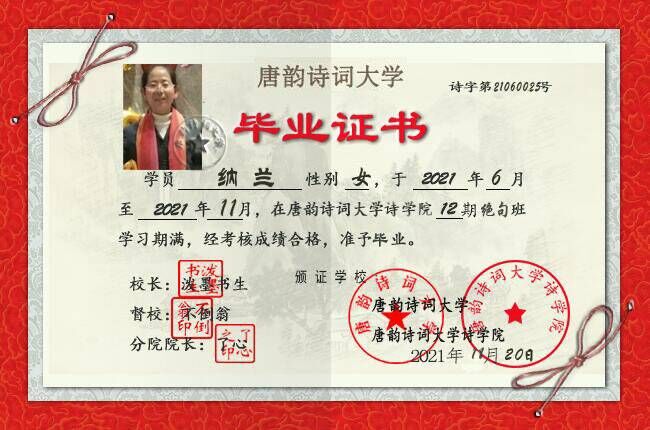 唐韵诗词大学
诗字第21060025号
毕业证书
学员 纳兰 性别 女，于 2021 年 6 月
至 2021 年 11月，在唐韵诗词大学诗学院 12 期绝句班
学习期满，经考核成绩合格，准予毕业。
颁证学校：
校长：泼墨书生
泼墨书生
督校：不倒翁
不倒翁印
唐韵诗词大学
唐韵诗词大学
唐韵诗词大学诗学院
分院院长：了心
了心之印
唐韵诗词大学诗学院
2021年 11月 20日